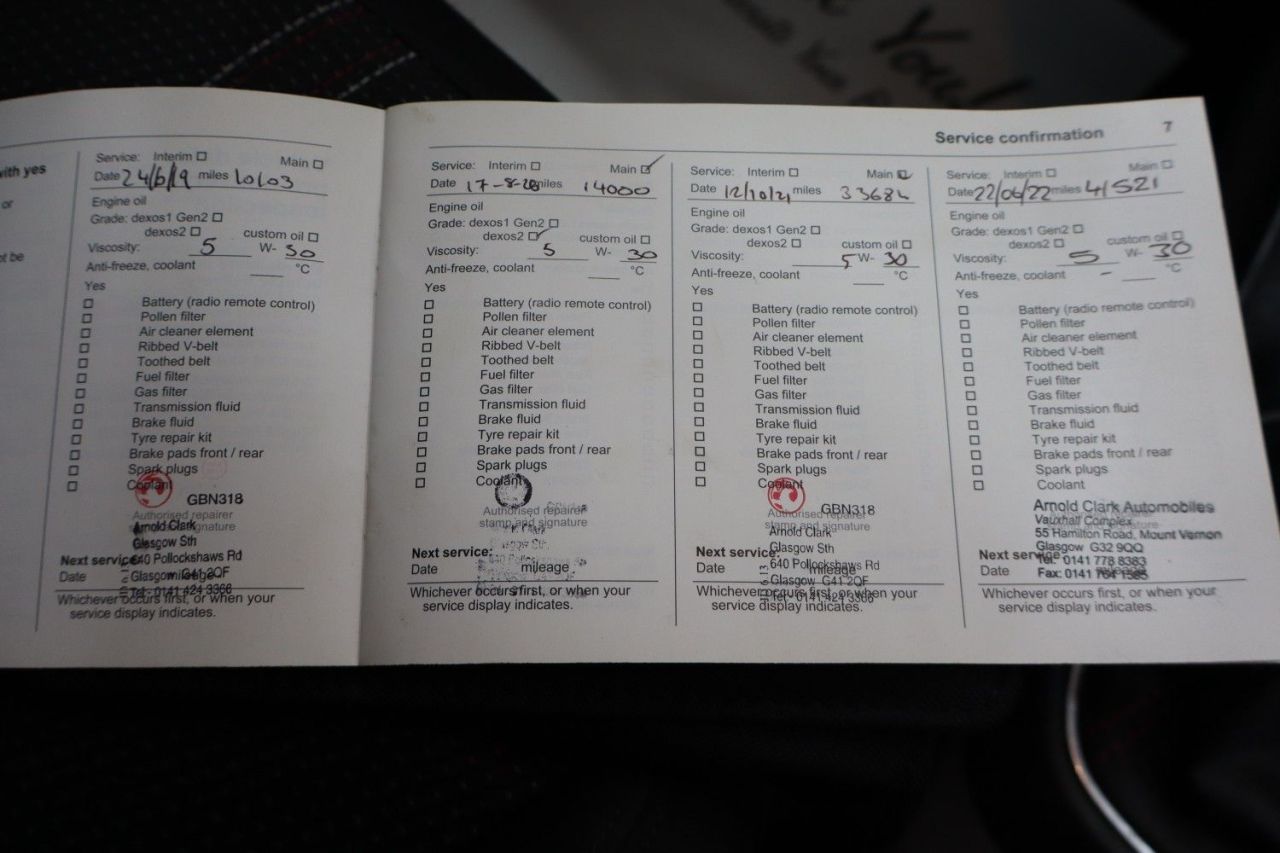 You!
Service confirmation 7
with yes
or
ot be
Service: Interim Main
Date 24/6/19 miles 10103
Engine oil
Grade: dexos1 Gen2
dexos2 custom oil
Viscosity: 5 W- 30
Anti-freeze, coolant °C
Yes
Battery (radio remote control)
Pollen filter
Air cleaner element
Ribbed V-belt
Toothed belt
Fuel filter
Gas filter
Transmission fluid
Brake fluid
Tyre repair kit
Brake pads front / rear
Spark plugs
Coolant
GBN318
Authorised repairer
stamp and signature
Arnold Clark
Glasgow Sth
640 Pollockshaws Rd
Glasgow G41 2QF
Tel: 0141 424 3366
Next service:
Date mileage
Whichever occurs first, or when your
service display indicates.
Service: Interim Main
Date 17-8-20 miles 14000
Engine oil
Grade: dexos1 Gen2
dexos2 custom oil
Viscosity: 5 W- 30
Anti-freeze, coolant °C
Yes
Battery (radio remote control)
Pollen filter
Air cleaner element
Ribbed V-belt
Toothed belt
Fuel filter
Gas filter
Transmission fluid
Brake fluid
Tyre repair kit
Brake pads front / rear
Spark plugs
Coolant
Authorised repairer
stamp and signature
Next service:
Date mileage
Whichever occurs first, or when your
service display indicates.
Service: Interim Main
Date 12/10/21 miles 33684
Engine oil
Grade: dexos1 Gen2
dexos2 custom oil
Viscosity: 5 W- 30
Anti-freeze, coolant °C
Yes
Battery (radio remote control)
Pollen filter
Air cleaner element
Ribbed V-belt
Toothed belt
Fuel filter
Gas filter
Transmission fluid
Brake fluid
Tyre repair kit
Brake pads front / rear
Spark plugs
Coolant
GBN318
Authorised repairer
stamp and signature
Arnold Clark
Glasgow Sth
640 Pollockshaws Rd
Glasgow G41 2QF
Tel: 0141 424 3366
Next service:
Date mileage
Whichever occurs first, or when your
service display indicates.
Service: Interim Main
Date 22/06/22 miles 41521
Engine oil
Grade: dexos1 Gen2
dexos2 custom oil
Viscosity: 5 W- 30
Anti-freeze, coolant - °C
Yes
Battery (radio remote control)
Pollen filter
Air cleaner element
Ribbed V-belt
Toothed belt
Fuel filter
Gas filter
Transmission fluid
Brake fluid
Tyre repair kit
Brake pads front / rear
Spark plugs
Coolant
Arnold Clark Automobiles
Vauxhall Complex
55 Hamilton Road, Mount Vernon
Glasgow G32 9QQ
Tel: 0141 778 8383
Fax: 0141 764 1585
Next service:
Date
Whichever occurs first, or when your
service display indicates.